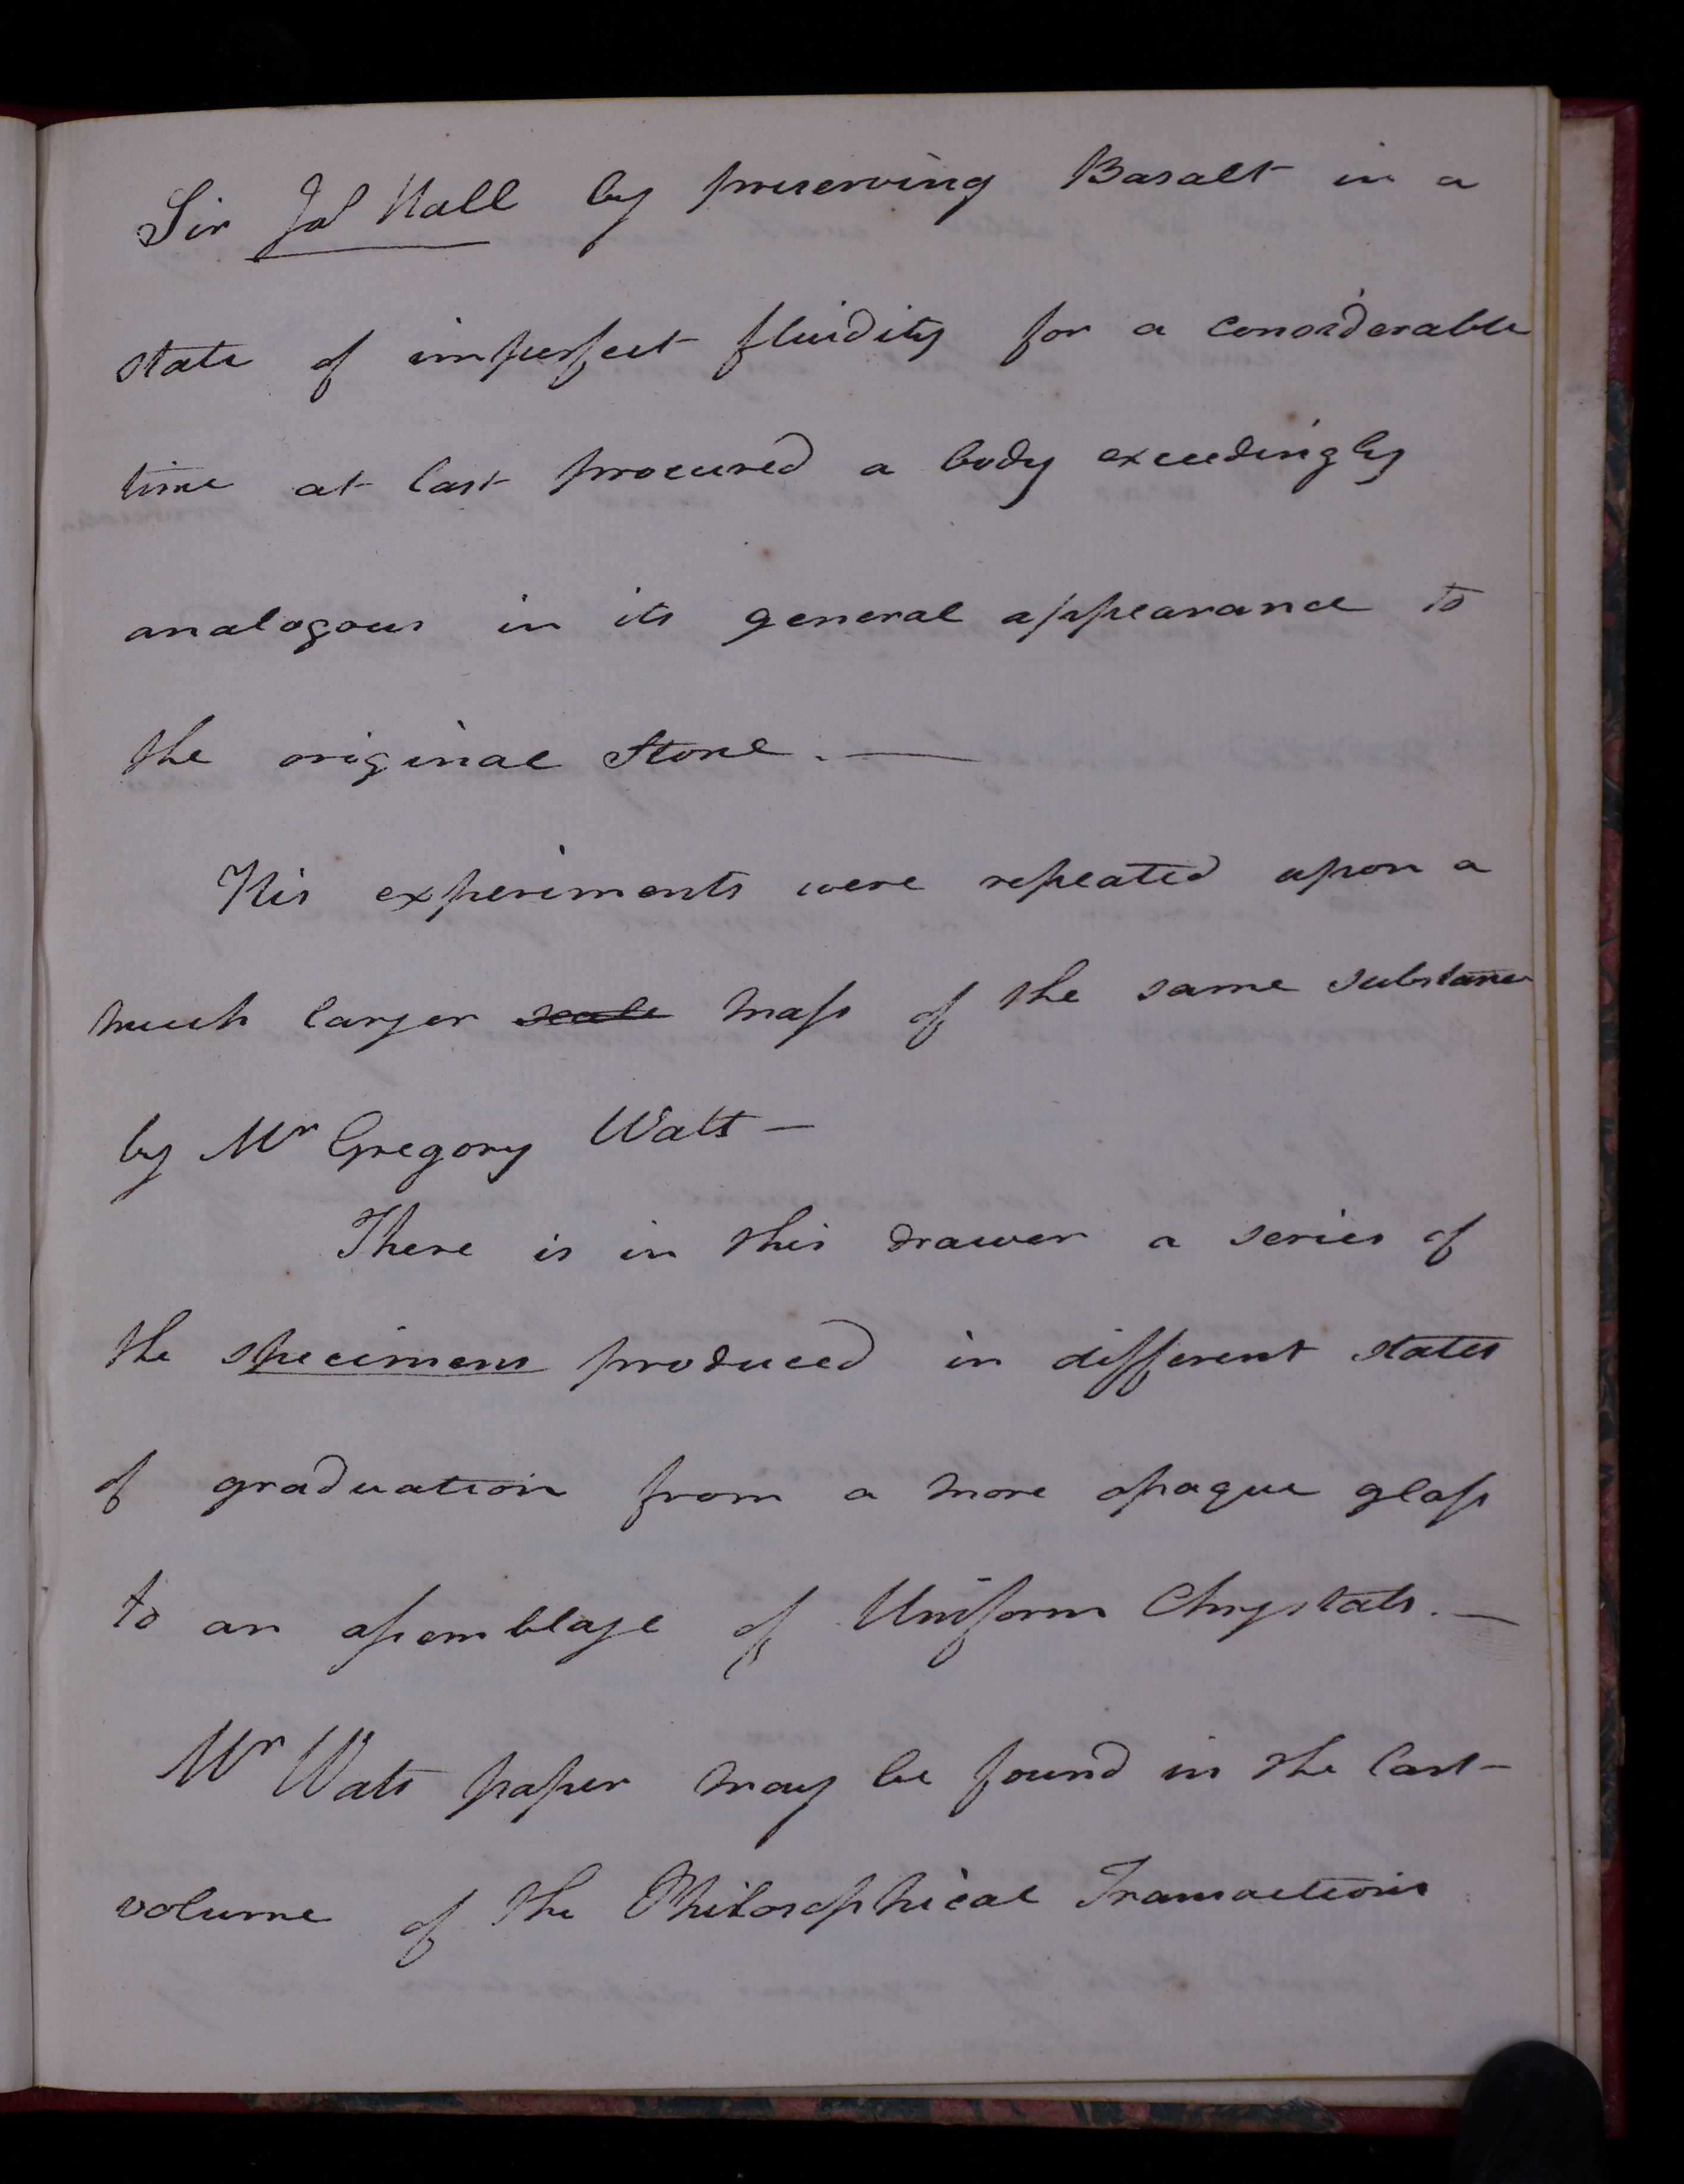 Sir Jas Hall by preserving Basalt in a
state of imperfect fluidity for a considerable
time at last procured a body exceedingly
analogous in its general appearance to
the original Stone. —
His experiments were repeated upon a
much larger scale mass of the same substance
by Mr Gregory Watt —
There is in this drawer a series of
the specimens produced in different states
of graduation from a more opaque glass
to an assemblage of Uniform Chrystals. —
Mr Watts paper may be found in the last
volume of the Philosophical Transactions